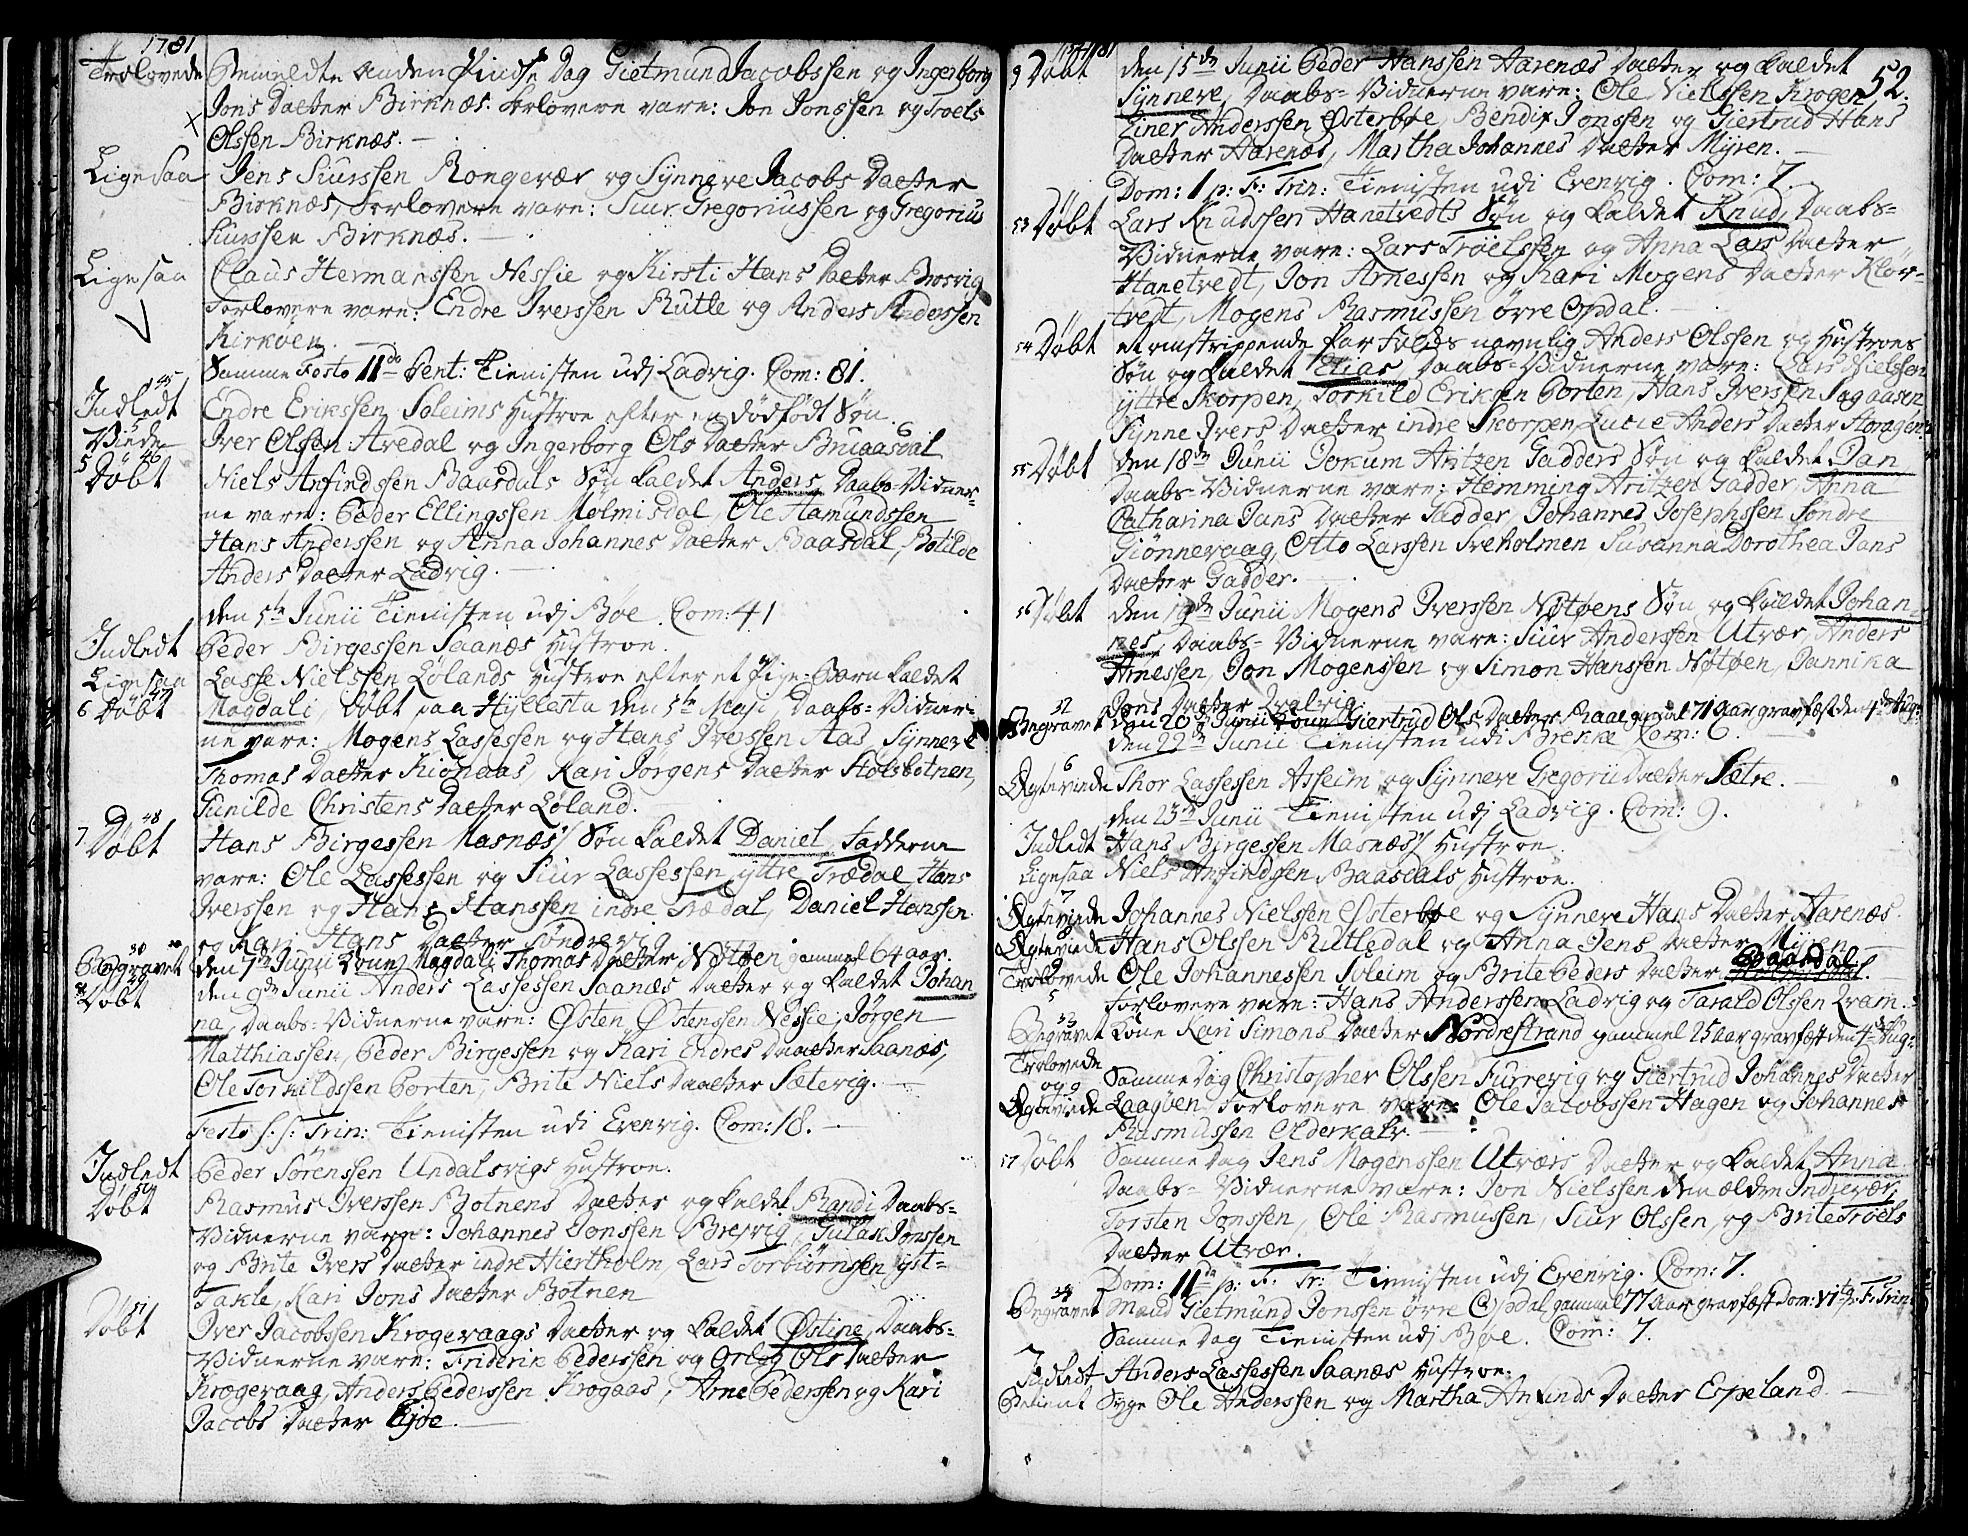 1781
Trolovede Bemeldte Anden Pindse Dag Gietmund Jacobssen og Ingerborg
Jons Datter Birknæs. Forlovere vare: Jon Jonssen og Troels
Olssen Birknæs.
Ligesaa Jens Siurssen Rongevær og Synneve Jacobs Datter
Birknæs, Forlovere vare: Siur Gregoriussen og Gregorius
Siurssen Birknæs.
Ligesaa Claus Hermanssen Nessie og Kirsti Hans Datter Brosvig
Forlovere vare: Endre Iverssen Rutle og Anders Anderssen
Kirkøen.
Samme Festo 11 do Pent: Tienisten udj Ladvig. Com: 81.
45
Indledt Endre Erikssen Soleims Hustroe efter en dødfødt Søn.
Viede Iver Olssen Aredal og Ingerborg Ols Datter Bruaasdal
5 46 Døbt Niels Anfindssen Baasdals Søn kaldet Anders, Daabs-Vidner-
ne vare: Peder Ellingssen Molmisdal, Ole Hamundssen
Hans Anderssen og Anna Johannes Datter Baasdal, Botilde
Anders Datter Ladvig.
den 5te Junii Tienisten udj Bøe. Com: 41
Indledt Peder Birgessen Saanæs Hustroe.
Ligesaa Lasse Nielssen Lølands Hustroe efter et Pige-Barn kaldet
6 47 Døbt Magdali, døbt paa Hyllestad den 5te Maji, Daabs-Vidner-
ne vare: Mogens Lassessen og Hans Iverssen Aas, Synneve
Thomas Datter Kionaas, Kari Jorgens Datter Stolsbotnen,
Gunilde Christens Datter Løland.
7 48 Døbt Hans Birgessen Masnæs's Søn kaldet Daniel, Fadderne
vare: Ole Lassessen og Siur Lassessen yttre Trædal, Hans
Iverssen og Hans Hanssen indre Trædal, Daniel Hanssen
og Kari Hans Datter Søndrevig
30 Begravet den 7de Junii Kone Magdali Thomas Datter Nøtøen gammel 64 aar.
Døbt den 9de Junii Anders Lassessen Saanæs Datter og kaldet Johan
na, Daabs-Vidnerne vare: Østen Østenssen Nessie, Jørgen
Matthiassen, Peder Birgessen og Kari Endres Datter Saanæs,
Ole Torkildssen Porten, Brite Niels Datter Sætevig.
Festo S: S: Trin: Tienisten udi Evenvig. Com: 18.
Indledt Peder Sørenssen Undalsvigs Hustroe.
50 Døbt Rasmus Iverssen Botnens Datter og kaldet Randi, Daabs-
Vidnerne vare: Johannes Jonssen Brejvig, Gulak Jonssen
og Brite Ivers Datter indre Hiertholm, Lars Torbiørnsen yst-
Takle, Kari Jons Datter Botnen
51 Døbt Iver Jacobssen Krogevaags Datter og kaldet Østine, Daabs-
Vidnerne vare: Friderik Pederssen og Orleg Ols Datter
Krogevaag, Anders Pederssen Krogaas, Arne Pederssen og Kari
Jacobs Datter Eyde.
1781
52.
9 Døbt den 15de Junii Peder Hanssen Aarenæs Datter og kaldet
Synneve, Daabs-Vidnerne vare: Ole Nielssen Krogen
Einer Anderssen Østerboe, Bendix Jonssen og Giertrud Hans
Datter Aarenæs, Martha Johannes Datter Myren.
Dom: 1 p: F: Trin: Tienisten udi Evenvig. Com: 7.
53 Døbt Lars Knudssen Hanetvedts Søn og kaldet Knud, Daabs-
Vidnerne vare: Lars Troelssen og Anna Lars Datter
Hanetvedt, Jon Arnessen og Kari Mogens Datter Kløv-
tvedt, Mogens Rasmussen øvre Opdal.
54 Døbt et omstrippende Par Folds navnlig Anders Olssen og Hustroes
Søn og kaldet Elias, Daabs-Vidnerne vare: Lars Nielssen
yttre Skorpen, Torkild Eriksen Porten, Hans Iverssen Sagaasen
Synne Ivers Datter indre Skorpen, Lucie Anders Datter Storagen.
55 Døbt den 18de Junii Jokum Antzen Gadders Søn og kaldet Jan
Daabs-Vidnerne vare: Hemming Antzen Gadder, Anna
Catharina Jans Datter Gadder, Johannes Josephssen Søndre
Giønnevaag, Otto Larssen Sveholmen Susanna Dorothea Jans
Datter Gadder.
56 Døbt den 19de Junii Mogens Iverssen Nøtøens Søn og kaldet Johan-
nes, Daabs-Vidnerne vare: Siur Anderssen Utvær, Anders
Arnessen, Jon Mogenssen og Simon Hanssen Nøtøen, Jannika
Jons Datter Qvalvig.
32 Begravet den 20de Junii Kone Giertrud Ols Datter Raae gammel 71 Aar gravfæst den 1de Aug:
den 22de Junii Tienisten udi Brekke Com: 6.
6 Ægteviede Skor Lassessen Asheim og Synneve Gregorii Datter Sætre.
den 23de Junii Tienisten udj Ladvig. Com: 9.
Indledt Hans Birgessen Masnæs's Hustroe.
Ligesaa Niels Anfindssen Baasdals Hustroe.
7 Ægteviede Johannes Nielssen Østerboe og Synneve Hans Datter Aarenæs.
Ægteviede Hans Olssen Rutledal og Anna Jens Datter Mijren
Trolovede Ole Johannessen Soleim og Brite Peders Datter Baasdal.
5 Forlovere vare: Hans Anderssen Ladvig og Tarald Olssen Qvam.
33 Begravet Kone Kari Simons Datter Nordrestrand gammel 25 aar gravfæst den 4de Aug:
Trolovede
og 9 Samme Dag Christopher Olssen Furrevig og Giertrud Johannes Datter
Ægteviede Laagøen, Forlovere vare: Ole Jacobssen Hagen og Johannes
Rasmussen Olderkalv.
57 Døbt Samme Dag Jens Mogenssen Utværs Datter og kaldet Anna
Daabs-Vidnerne vare: Jon Nielssen den ælden Indrevær,
Torsten Jonssen, Ole Rasmussen, Siur Olssen, og Brite Troels
Datter Utvær.
Dom: 11 da p: F: Tr: Tienisten udj Evenvig. Com: 7.
34 Begravet Mand Gietmund Jonssen øvre Opdal gammel 77 Aar gravfæst Dom: VI p: F: Trin:
Samme Dag Tienisten udj Bøe. Com: 7.
Indledt Anders Lassessen Saanæs Hustroe.
Betient Syge Ole Anderssen og Martha Amunds Datter Espeland.